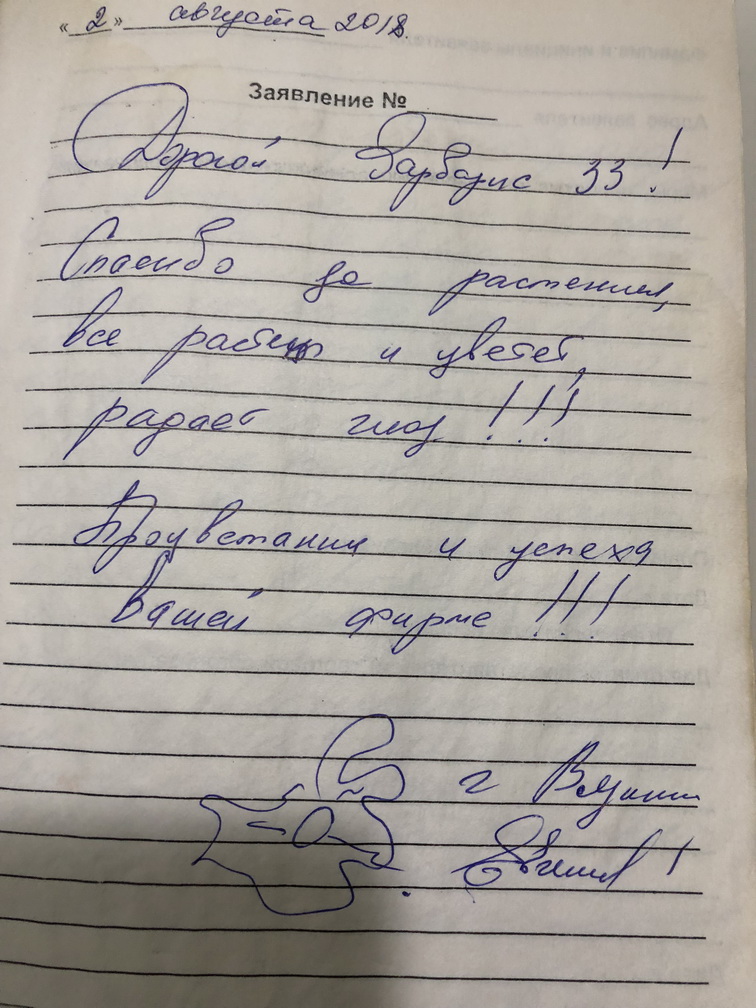 « 2 » августа 2018
Заявление №
Дорогой Барбарис 33!
Спасибо за растения,
все растет и цветет,
радает глаз!!!
Процветания и успеха
вашей фирме!!!
г
Евгения!